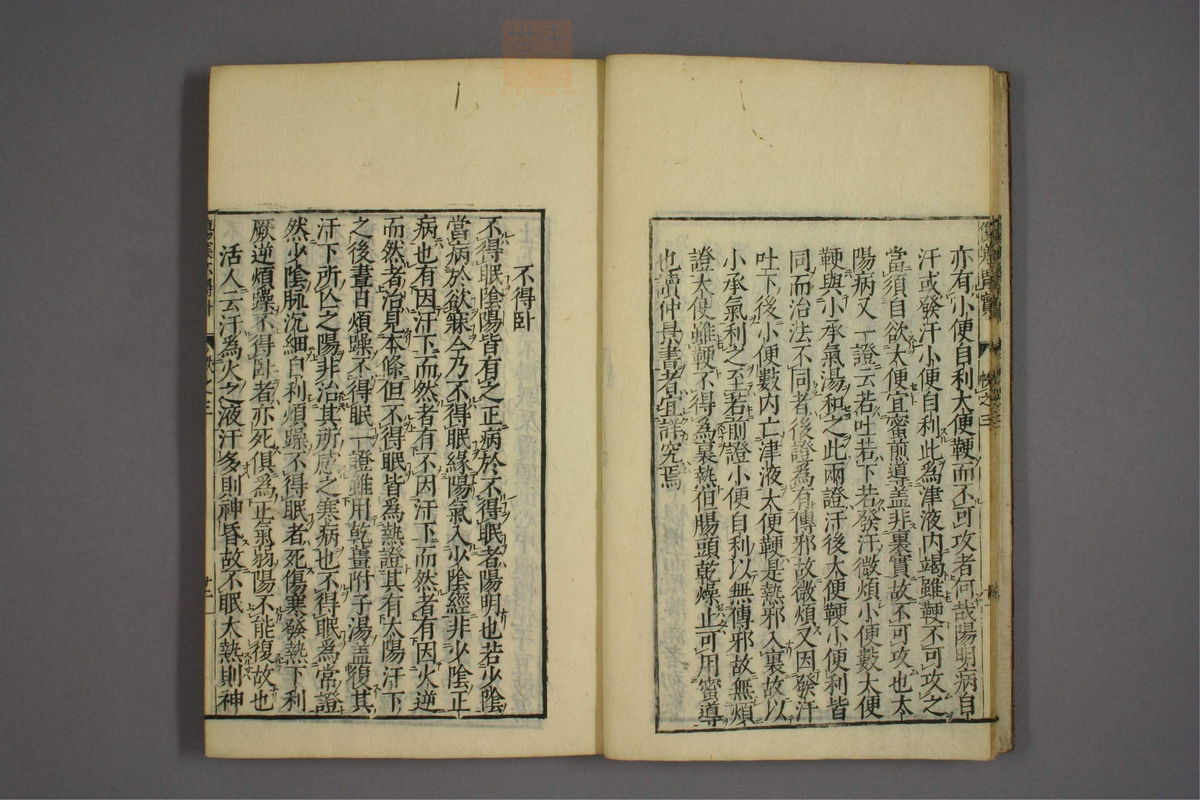 亦有小便自利大便鞕而不可攻者何哉陽明病自
汗或發汗小便自利此為津液內竭雖鞕不可攻之
當須自欲大便宜蜜煎導盖非裏實故不可攻也太
陽病又一證云若吐若下若發汗微煩小便數大便
鞕與小承氣湯和之此兩證汗後大便鞕小便利皆
同而治法不同者後證為有傳邪故微煩又因發汗
吐下後小便數內亡津液大便鞕是熱邪入裏故以
小承氣利之至若前證小便自利以無傳邪故無煩
證大便雖鞕不得為裏熱但腸頭乾燥止可用蜜導
也讀仲景書者宜詳究焉
不得卧
不得眠陰陽皆有之正病於不得眠者陽明也若少陰
當病於欲寐今乃不得眠緣陽氣入少陰經非少陰正
病也有因汗下而然者有不因汗下而然者有因火逆
而然者治見本條但不得眠皆為熱證其有太陽汗下
之後晝日煩躁不得眠一證雖用乾薑附子湯盖復其
汗下所亾之陽非治其所感之寒病也不得眠為常證
然少陰脉沉細自利煩躁不得眠者死傷寒發熱下利
厥逆煩躁不得卧者亦死俱為正氣弱陽不能復故也
活人云汗為火之液汗多則神昏故不眠大熱則神